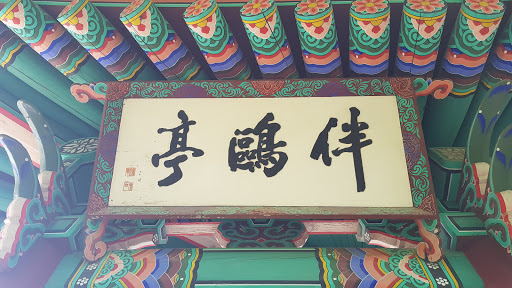 伴鷗亭